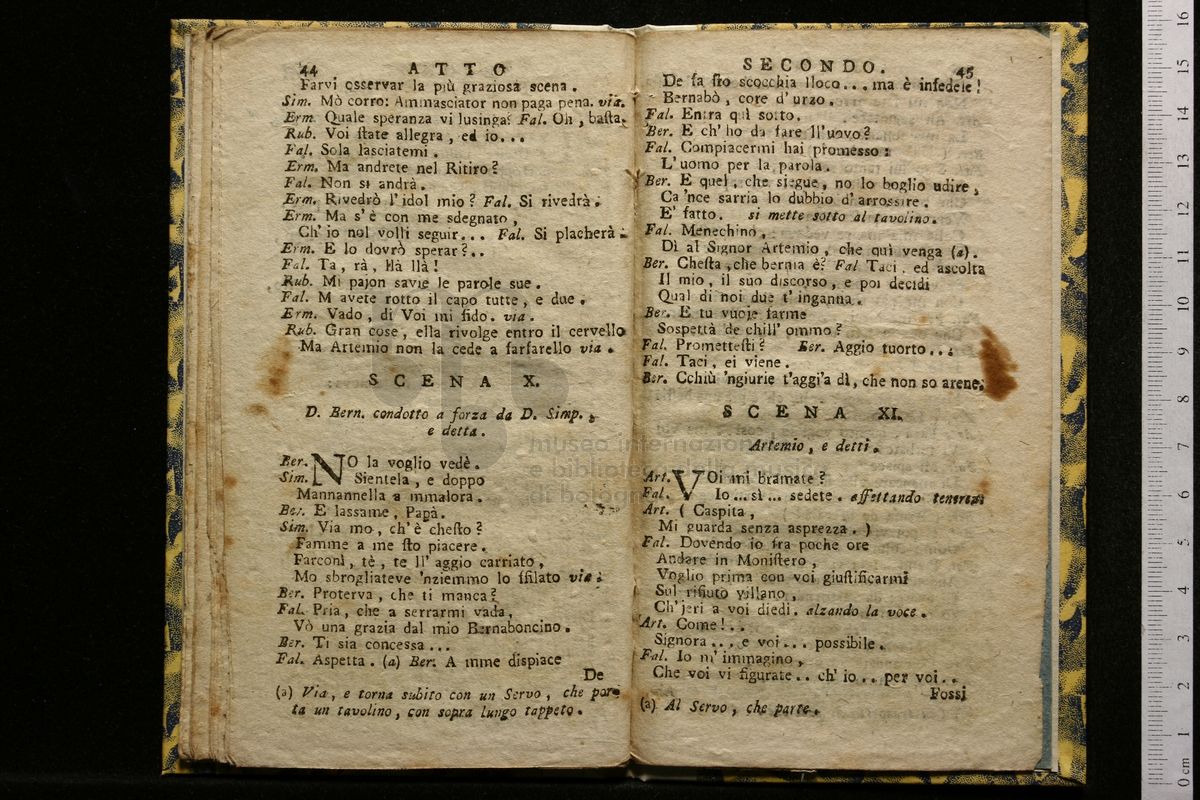 44 ATTO
Farvi osservar la più graziosa scena.
Sim. Mò corro: Ammasciator non paga pena. via.
Erm. Quale speranza vi lusinga? Fal. Oh, baſta.
Rub. Voi ſtate allegra, ed io...
Fal. Sola lasciatemi.
Erm. Ma andrete nel Ritiro?
Fal. Non si andrà.
Erm. Rivedrò l'idol mio? Fal. Si rivedrà.
Erm. Ma s'è con me sdegnato,
Ch'io nol volli seguir... Fal. Si placherà.
Erm. E lo dovrò sperar?..
Fal. Ta, rà, llà llà!
Rub. Mi pajon savie le parole sue.
Fal. M avete rotto il capo tutte, e due.
Erm. Vado, di Voi mi fido. via.
Rub. Gran cose, ella rivolge entro il cervello
Ma Artemio non la cede a farfarello via.
SCENA X.
D. Bern. condotto a forza da D. Simp.,
e detta.
Ber. NO la voglio vedè.
Sim. Sientela, e doppo
Mannannella a mmalora.
Ber. E lassame, Papà.
Sim. Via mo, ch'è cheſto?
Famme a me ſto piacere.
Farconì, tè, te ll'aggio carriato,
Mo sbrogliateve 'nziemmo lo ſfilato via.
Ber. Proterva, che ti manca?
Fal. Pria, che a serrarmi vada,
Vò una grazia dal mio Bernaboncino.
Ber. Ti sia concessa...
Fal. Aspetta. (a) Ber. A mme dispiace
De
(a) Via, e torna subito con un Servo, che por-
ta un tavolino, con sopra lungo tappeto.
SECONDO. 45
De fa ſto scocchia lloco... ma è infedele!
Bernabò, core d'urzo.
Fal. Entra quì sotto.
Ber. E ch'ho da fare ll'uovo?
Fal. Compiacermi hai promesso:
L'uomo per la parola.
Ber. E quel, che siegue, no lo boglio udire,
Ca 'nce sarria lo dubbio d'arrossire.
E' fatto. si mette sotto al tavolino.
Fal. Menechino,
Dì al Signor Artemio, che quì venga (a).
Ber. Cheſta, che bernia è? Fal Taci, ed ascolta
Il mio, il suo discorso, e poi decidi
Qual di noi due t'inganna.
Ber. E tu vuoje farme
Sospettà de chill'ommo?
Fal. Prometteſti? Ber. Aggio tuorto...
Fal. Taci, ei viene.
Ber. Cchiù 'ngiurie t'aggi'a dì, che non so arene.
SCENA XI.
Artemio, e detti.
Art. VOi mi bramate?
Fal. Io... sì... sedete. affettando tenerezza
Art. ( Caspita,
Mi guarda senza asprezza. )
Fal. Dovendo io fra poche ore
Andare in Moniſtero,
Voglio prima con voi giuſtificarmi
Sul rifiuto villano,
Ch'jeri a voi diedi. alzando la voce.
Art. Come!..
Signora... e voi... possibile.
Fal. Io m'immagino,
Che voi vi figurate.. ch'io.. per voi..
Fossi
(a) Al Servo, che parte.
museo internazionale
e biblioteca della musica
di bologna